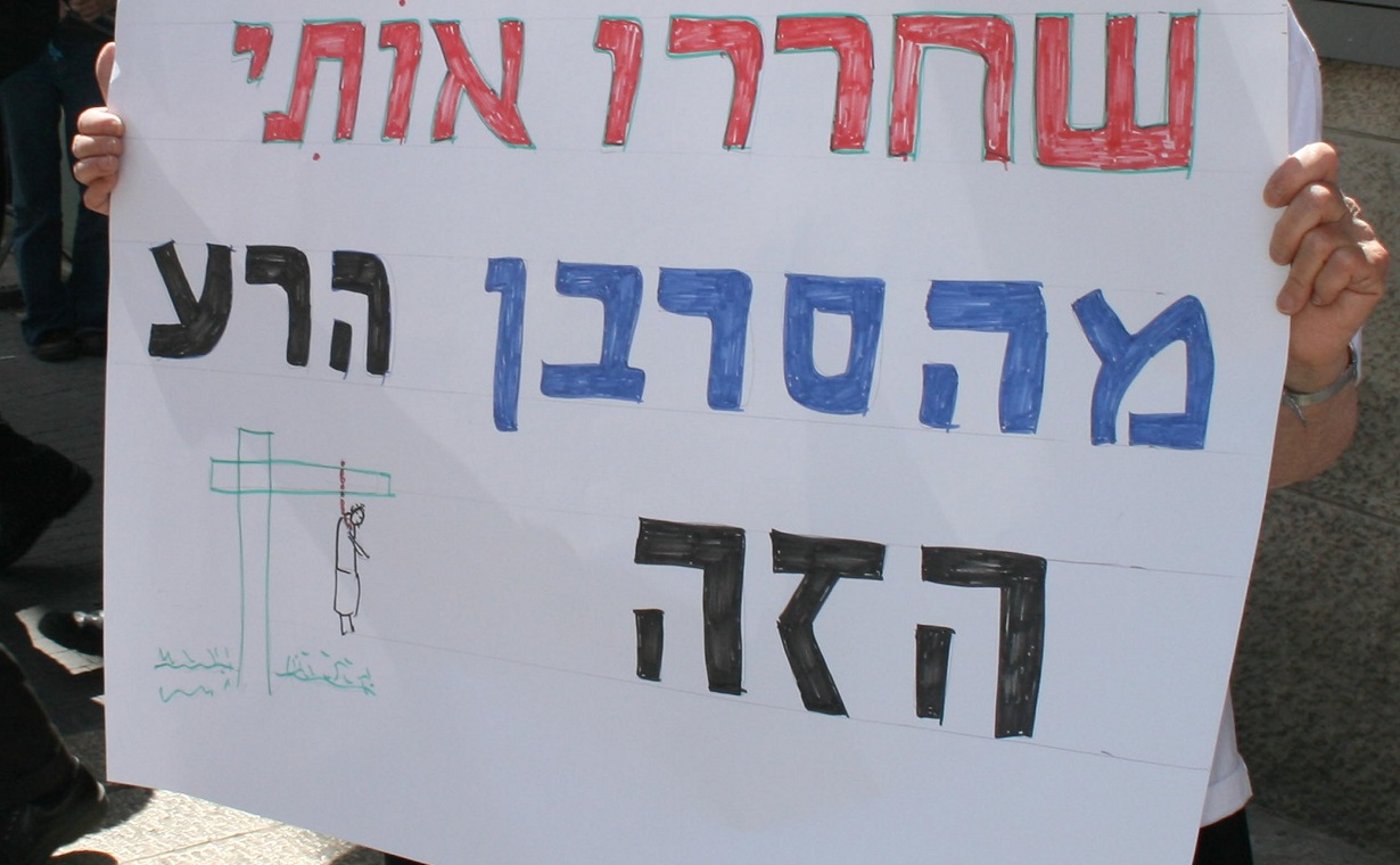 שחררו אותי
מהסרבן הרע
הזה